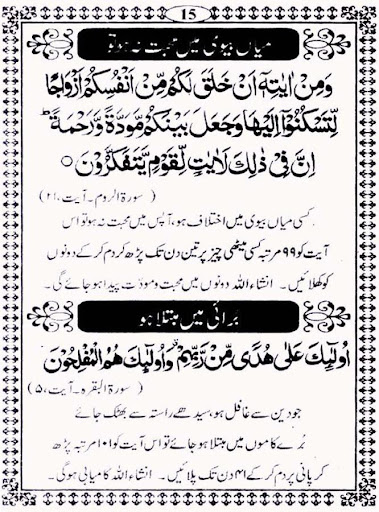 15
میاں بیوی میں محبت نہ ہو تو
وَمِنْ اٰیٰتِهٖۤ اَنْ خَلَقَ لَكُمْ مِّنْ اَنْفُسِكُمْ اَزْوَاجًا
لِّتَسْكُنُوْۤا اِلَیْهَا وَجَعَلَ بَیْنَكُمْ مَّوَدَّةً وَّرَحْمَةً ؕ
اِنَّ فِیْ ذٰلِكَ لَاٰیٰتٍ لِّقَوْمٍ یَّتَفَكَّرُوْنَ ○
(سورۃ الروم۔ آیت، ۲۱)
کسی میاں بیوی میں اختلاف ہو، آپس میں محبت نہ ہو تو اس
آیت کو ۹۹ مرتبہ کسی میٹھی چیز پر تین دن تک پڑھ کر دم کر کے دونوں
کو کھلائیں۔ انشاء اللہ دونوں میں محبت و مودت پیدا ہو جائے گی۔
برائی میں مبتلا ہو
اُولٰٓئِكَ عَلٰی هُدًی مِّنْ رَّبِّهِمْ وَاُولٰٓئِكَ هُمُ الْمُفْلِحُوْنَ
(سورۃ البقرہ۔ آیت، ۵)
جو دین سے غافل ہو، سیدھے راستہ سے بھٹک جائے
بُرے کاموں میں مبتلا ہو جائے تو اس آیت کو ۱۰۱ مرتبہ پڑھ
کر پانی پر دم کر کے ۴۱ دن تک پلائیں۔ انشاء اللہ کامیابی ہو گی۔